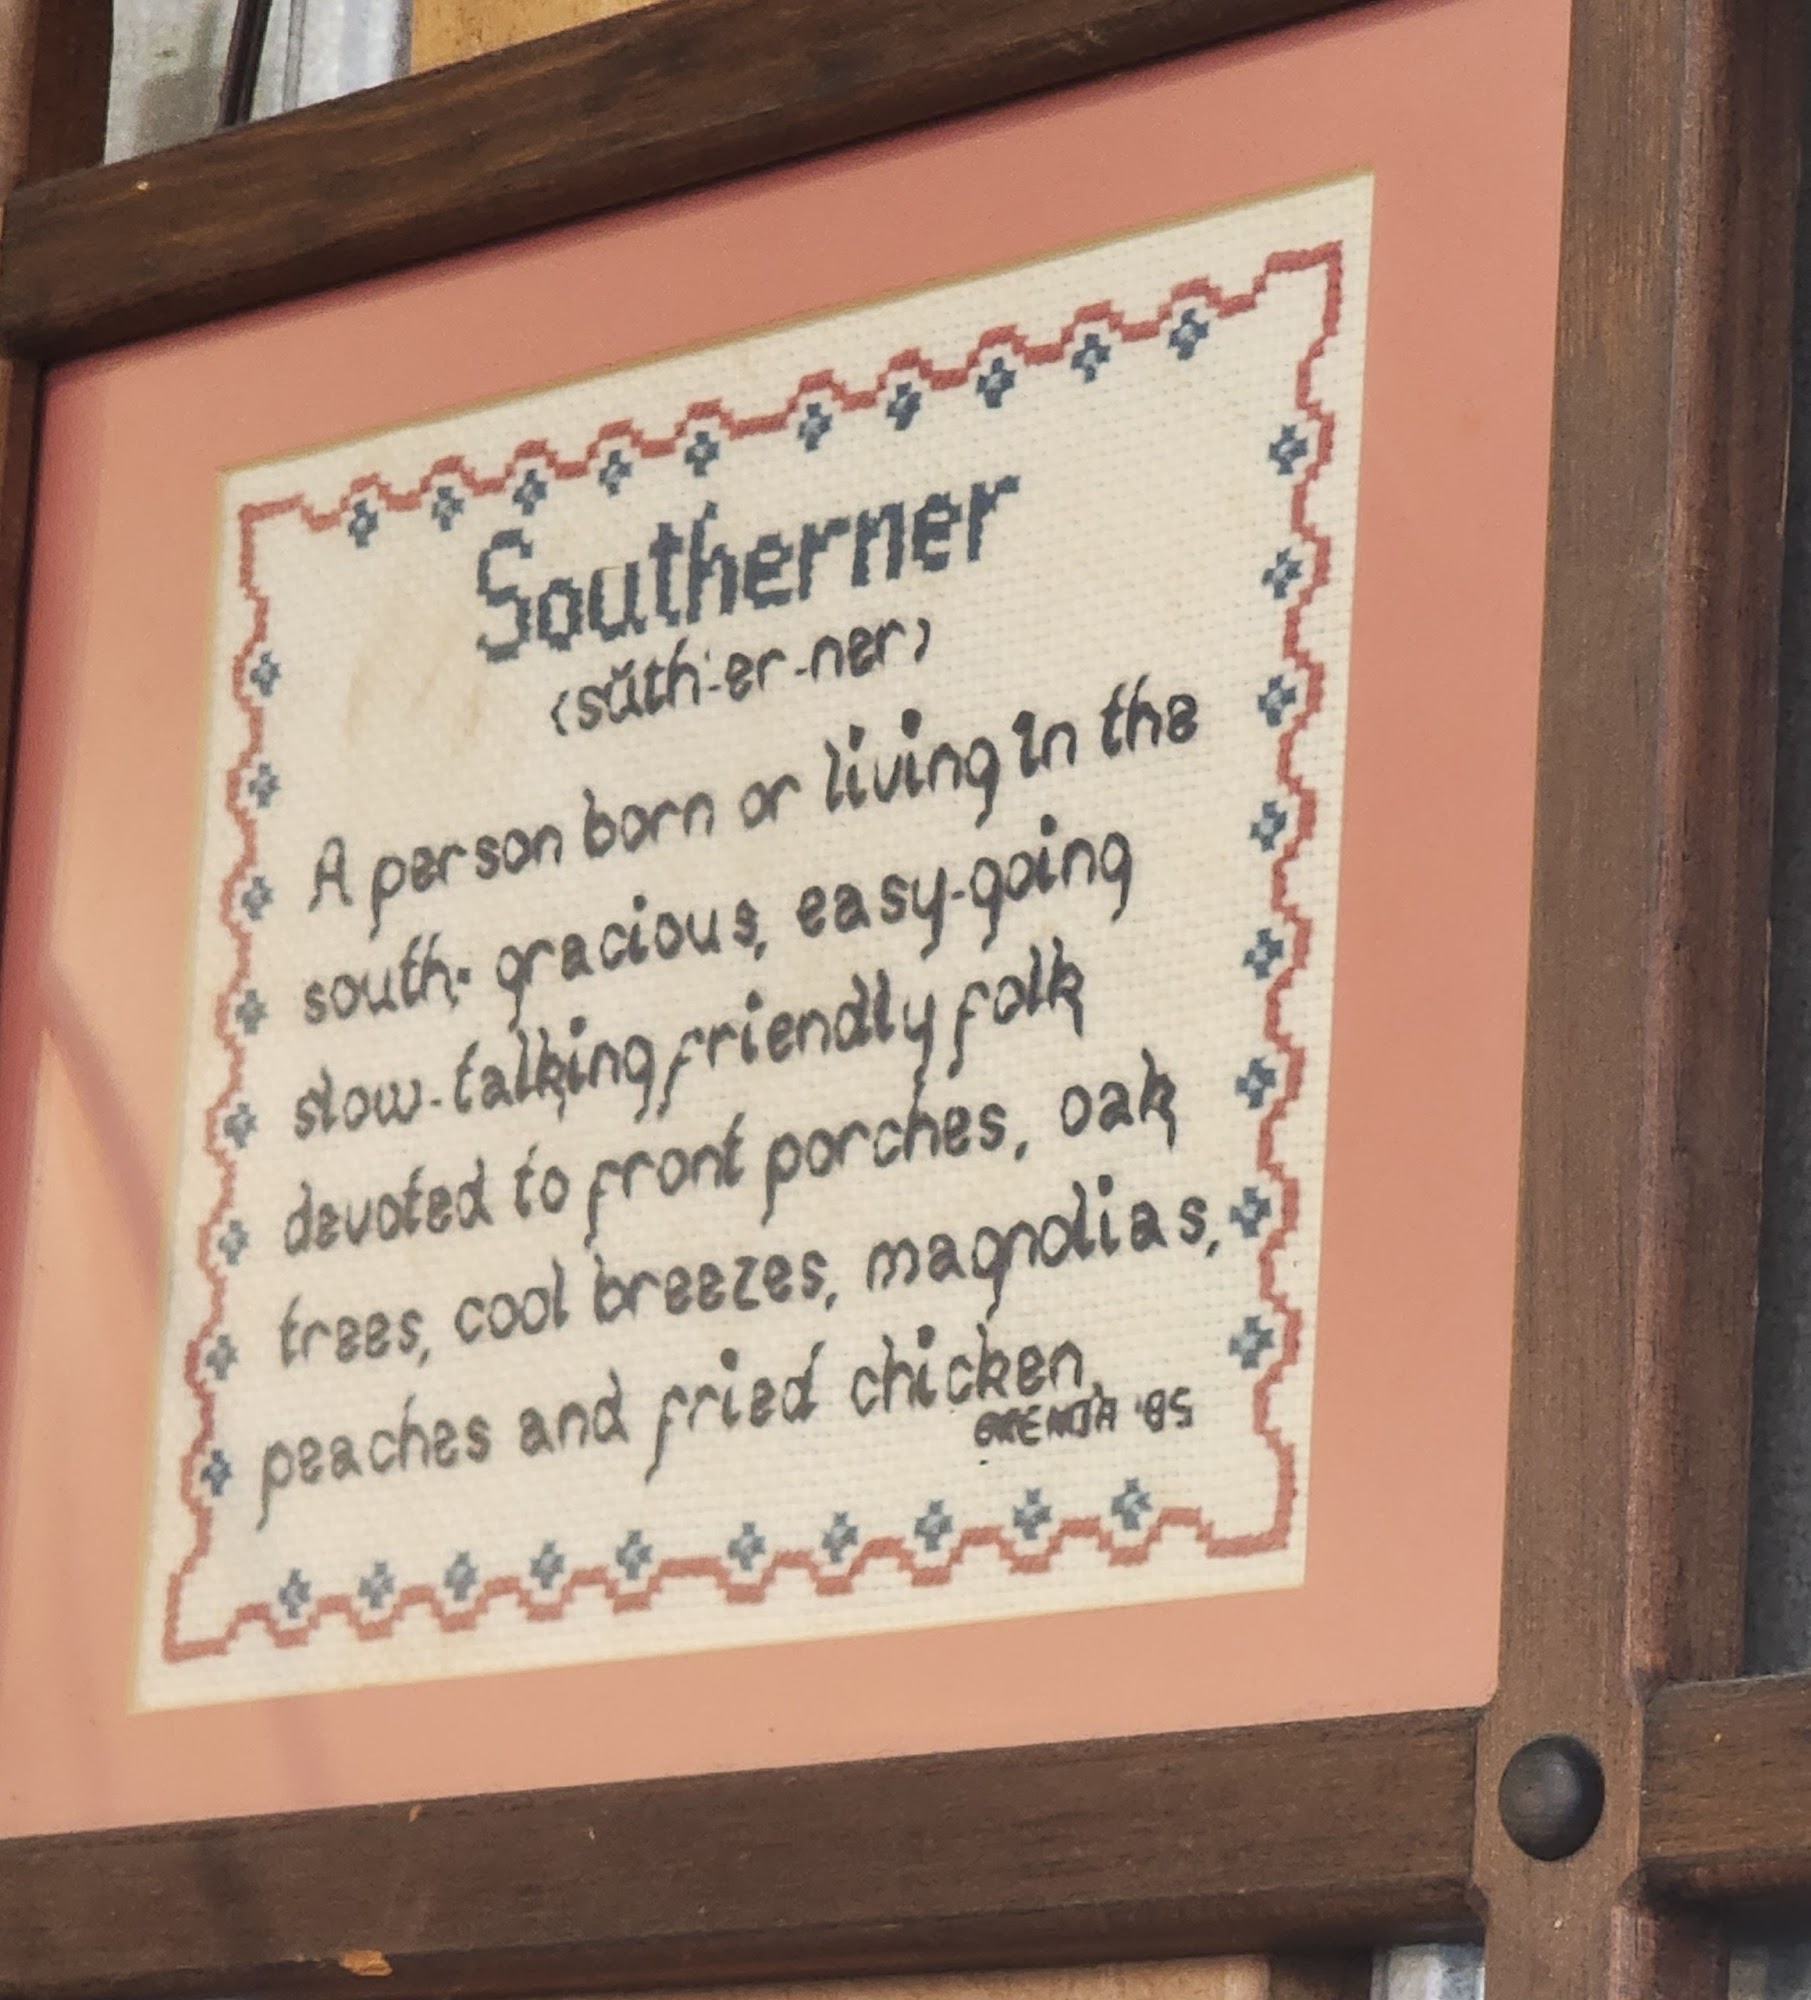 Southerner
(sŭth'-er-ner)
A person born or living in the
south. gracious, easy-going
slow-talking friendly folk
devoted to front porches, oak
trees, cool breezes, magnolias,
peaches and fried chicken.
BRENDA '85